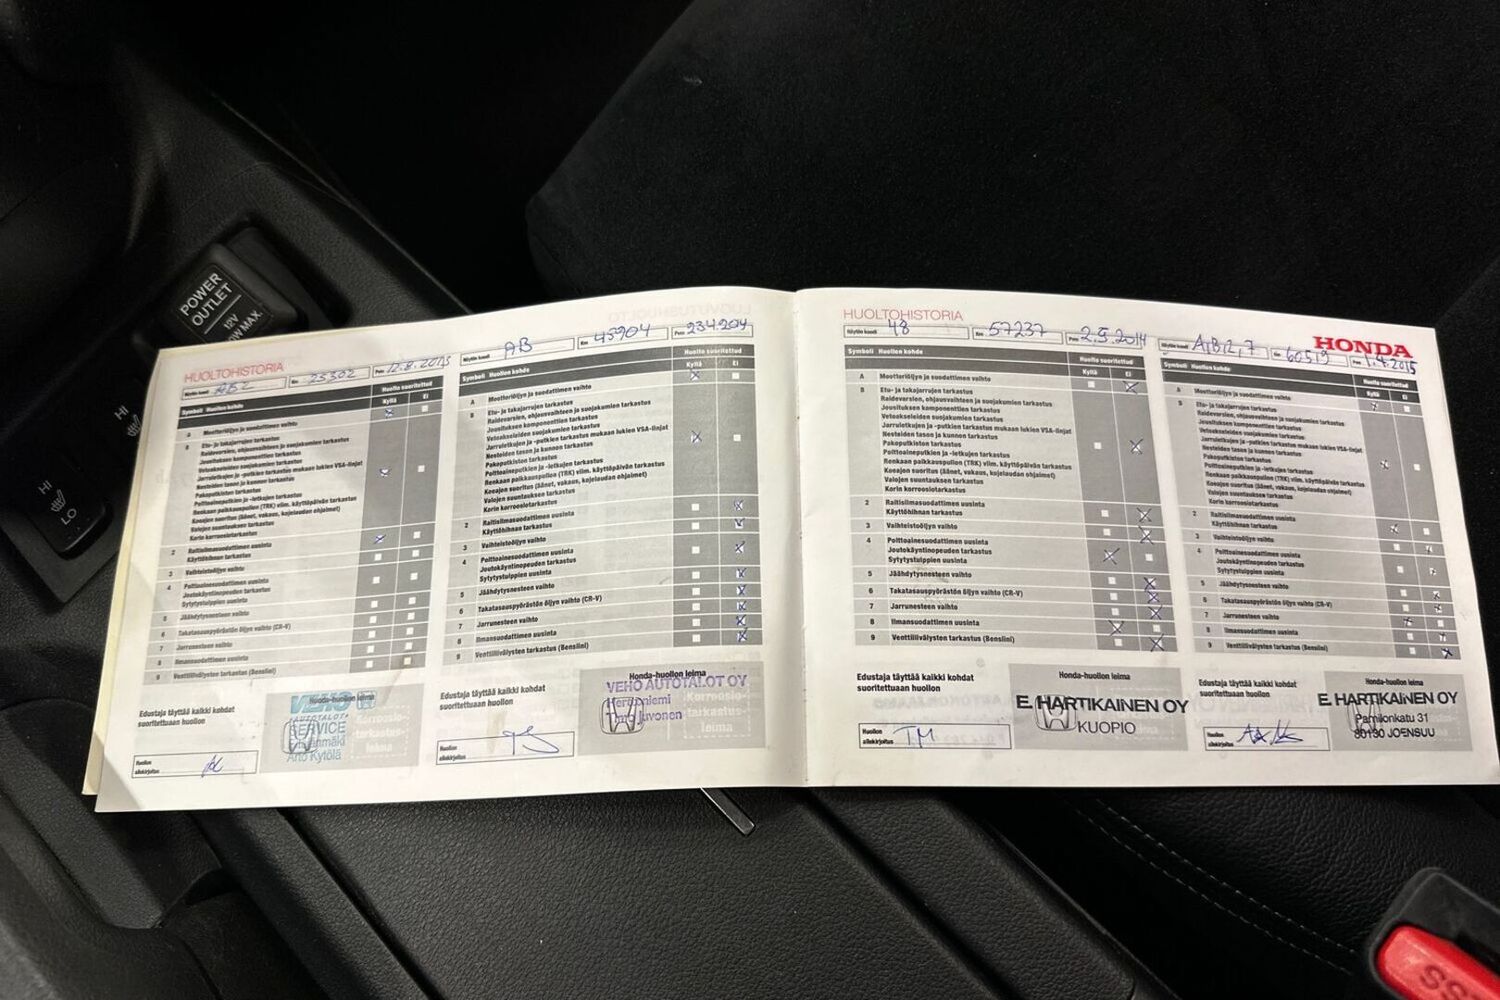 POWER
OUTLET
12V
HI
HI
LO
HUOLTOHISTORIA
Näytön koodi AB2 Km 25302 Pvm 12.8.2013
Huolto suoritettud
Symboli Huollon kohde Kyllä Ei
A Moottoriöljyn ja suodattimen vaihto
B Etu- ja takajarrujen tarkastus
Raidevarsien, ohjausvaihteen ja suojakumien tarkastus
Jousituksen komponenttien tarkastus
Vetoakseleiden suojakumien tarkastus
Jarruletkujen ja -putkien tarkastus mukaan lukien VSA-linjat
Nesteiden tason ja kunnon tarkastus
Pakoputkiston tarkastus
Polttoaineputkien ja -letkujen tarkastus
Renkaan paikkauspullon (TRK) viim. käyttöpäivän tarkastus
Koeajon suoritus (äänet, vakaus, kojelaudan ohjaimet)
Valojen suuntauksen tarkastus
Korin korroosiotarkastus
2 Raitisilmasuodattimen uusinta
Käyttöhihnan tarkastus
3 Vaihteistoöljyn vaihto
4 Polttoainesuodattimen uusinta
Joutokäyntinopeuden tarkastus
Sytytystulppien uusinta
5 Jäähdytysnesteen vaihto
6 Takatasauspyörästön öljyn vaihto (CR-V)
7 Jarrunesteen vaihto
8 Ilmansuodattimen uusinta
9 Venttiilivälysten tarkastus (Bensiini)
Edustaja täyttää kaikki kohdat
suoritettuaan huollon
Honda-huollon leima
VEHO
AUTOTALOT
SERVICE
Arto Kytölä
Korroosio-
tarkastus-
leima
Huollon
allekirjoitus
Näytön koodi AB Km 45904 Pvm 23.4.2014
Huolto suoritettud
Symboli Huollon kohde Kyllä Ei
A Moottoriöljyn ja suodattimen vaihto
B Etu- ja takajarrujen tarkastus
Raidevarsien, ohjausvaihteen ja suojakumien tarkastus
Jousituksen komponenttien tarkastus
Vetoakseleiden suojakumien tarkastus
Jarruletkujen ja -putkien tarkastus mukaan lukien VSA-linjat
Nesteiden tason ja kunnon tarkastus
Pakoputkiston tarkastus
Polttoaineputkien ja -letkujen tarkastus
Renkaan paikkauspullon (TRK) viim. käyttöpäivän tarkastus
Koeajon suoritus (äänet, vakaus, kojelaudan ohjaimet)
Valojen suuntauksen tarkastus
Korin korroosiotarkastus
2 Raitisilmasuodattimen uusinta
Käyttöhihnan tarkastus
3 Vaihteistoöljyn vaihto
4 Polttoainesuodattimen uusinta
Joutokäyntinopeuden tarkastus
Sytytystulppien uusinta
5 Jäähdytysnesteen vaihto
6 Takatasauspyörästön öljyn vaihto (CR-V)
7 Jarrunesteen vaihto
8 Ilmansuodattimen uusinta
9 Venttiilivälysten tarkastus (Bensiini)
Edustaja täyttää kaikki kohdat
suoritettuaan huollon
Honda-huollon leima
VEHO AUTOTALOT OY
Herttoniemi
Timo Juvonen
Korroosio-
tarkastus-
leima
Huollon
allekirjoitus
HUOLTOHISTORIA
Näytön koodi 48 Km 57237 Pvm 2.5.2014
Huolto suoritettud
Symboli Huollon kohde Kyllä Ei
A Moottoriöljyn ja suodattimen vaihto
B Etu- ja takajarrujen tarkastus
Raidevarsien, ohjausvaihteen ja suojakumien tarkastus
Jousituksen komponenttien tarkastus
Vetoakseleiden suojakumien tarkastus
Jarruletkujen ja -putkien tarkastus mukaan lukien VSA-linjat
Nesteiden tason ja kunnon tarkastus
Pakoputkiston tarkastus
Polttoaineputkien ja -letkujen tarkastus
Renkaan paikkauspullon (TRK) viim. käyttöpäivän tarkastus
Koeajon suoritus (äänet, vakaus, kojelaudan ohjaimet)
Valojen suuntauksen tarkastus
Korin korroosiotarkastus
2 Raitisilmasuodattimen uusinta
Käyttöhihnan tarkastus
3 Vaihteistoöljyn vaihto
4 Polttoainesuodattimen uusinta
Joutokäyntinopeuden tarkastus
Sytytystulppien uusinta
5 Jäähdytysnesteen vaihto
6 Takatasauspyörästön öljyn vaihto (CR-V)
7 Jarrunesteen vaihto
8 Ilmansuodattimen uusinta
9 Venttiilivälysten tarkastus (Bensiini)
Edustaja täyttää kaikki kohdat
suoritettuaan huollon
Honda-huollon leima
E. HARTIKAINEN OY
KUOPIO
Huollon
allekirjoitus TM
HONDA
Näytön koodi A,B,2,7 Km 60519 Pvm 1.4.2015
Huolto suoritettud
Symboli Huollon kohde Kyllä Ei
A Moottoriöljyn ja suodattimen vaihto
B Etu- ja takajarrujen tarkastus
Raidevarsien, ohjausvaihteen ja suojakumien tarkastus
Jousituksen komponenttien tarkastus
Vetoakseleiden suojakumien tarkastus
Jarruletkujen ja -putkien tarkastus mukaan lukien VSA-linjat
Nesteiden tason ja kunnon tarkastus
Pakoputkiston tarkastus
Polttoaineputkien ja -letkujen tarkastus
Renkaan paikkauspullon (TRK) viim. käyttöpäivän tarkastus
Koeajon suoritus (äänet, vakaus, kojelaudan ohjaimet)
Valojen suuntauksen tarkastus
Korin korroosiotarkastus
2 Raitisilmasuodattimen uusinta
Käyttöhihnan tarkastus
3 Vaihteistoöljyn vaihto
4 Polttoainesuodattimen uusinta
Joutokäyntinopeuden tarkastus
Sytytystulppien uusinta
5 Jäähdytysnesteen vaihto
6 Takatasauspyörästön öljyn vaihto (CR-V)
7 Jarrunesteen vaihto
8 Ilmansuodattimen uusinta
9 Venttiilivälysten tarkastus (Bensiini)
Edustaja täyttää kaikki kohdat
suoritettuaan huollon
Honda-huollon leima
E. HARTIKAINEN OY
Parnilonkatu 31
80130 JOENSUU
Huollon
allekirjoitus